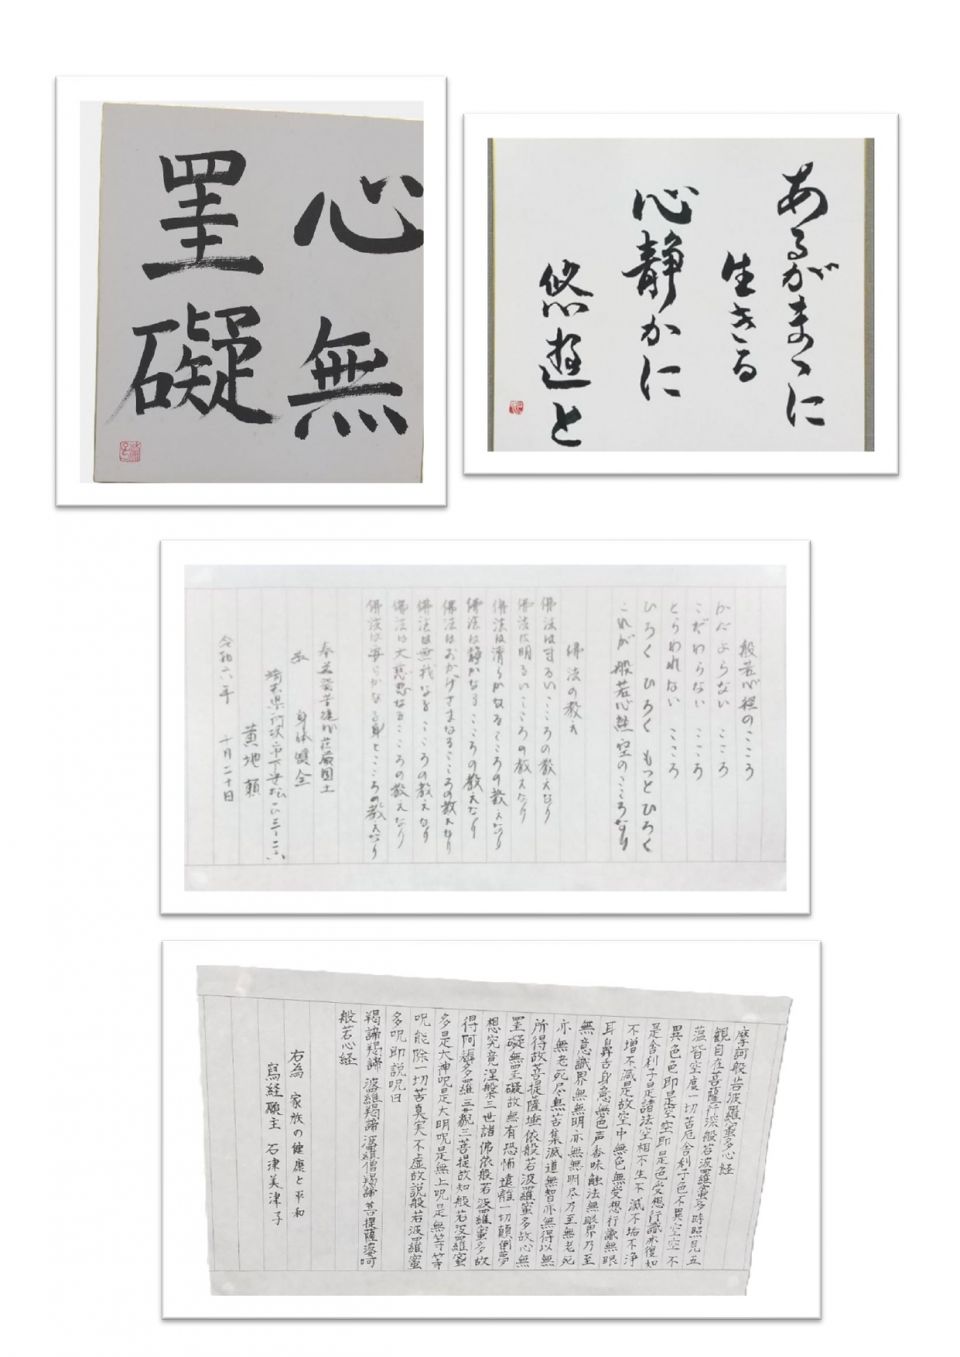 心無
罣礙
あるがまゝに
生きる
心静かに
悠遊と
般若心経のこころ
かたよらない こころ
こだわらない こころ
とらわれない こころ
ひろく ひろく もっと ひろく
これが 般若心経 空のこころなり
佛法の教え
佛法はまるいこころの教えなり
佛法は明るいこころの教えなり
佛法は清らかなるこころの教えなり
佛法は静かなるこころの教えなり
佛法はおかげさまなるこころの教えなり
佛法は無我なるこころの教えなり
佛法は大慈悲なるこころの教えなり
佛法は安らかなる身とこころの教えなり
身体健全
埼玉県
黄地
令和六年 十月二十日
摩訶般若波羅蜜多心経
観自在菩薩行深般若波羅蜜多時照見五
蘊皆空度一切苦厄舎利子色不異空空不
異色色即是空空即是色受想行識亦復如
是舎利子是諸法空相不生不滅不垢不浄
不増不減是故空中無色無受想行識無眼
耳鼻舌身意無色声香味触法無眼界乃至
無意識界無無明亦無無明尽乃至無老死
亦無老死尽無苦集滅道無智亦無得以無
所得故菩提薩埵依般若波羅蜜多故心無
罣礙無罣礙故無有恐怖遠離一切顛倒夢
想究竟涅槃三世諸佛依般若波羅蜜多故
得阿耨多羅三藐三菩提故知般若波羅蜜
多是大神呪是大明呪是無上呪是無等等
呪能除一切苦真実不虚故説般若波羅蜜
多呪即説呪曰
羯諦羯諦 波羅羯諦 波羅僧羯諦 菩提薩婆訶
般若心経
右為 家族の健康と平和
寫経願主 石津美津子